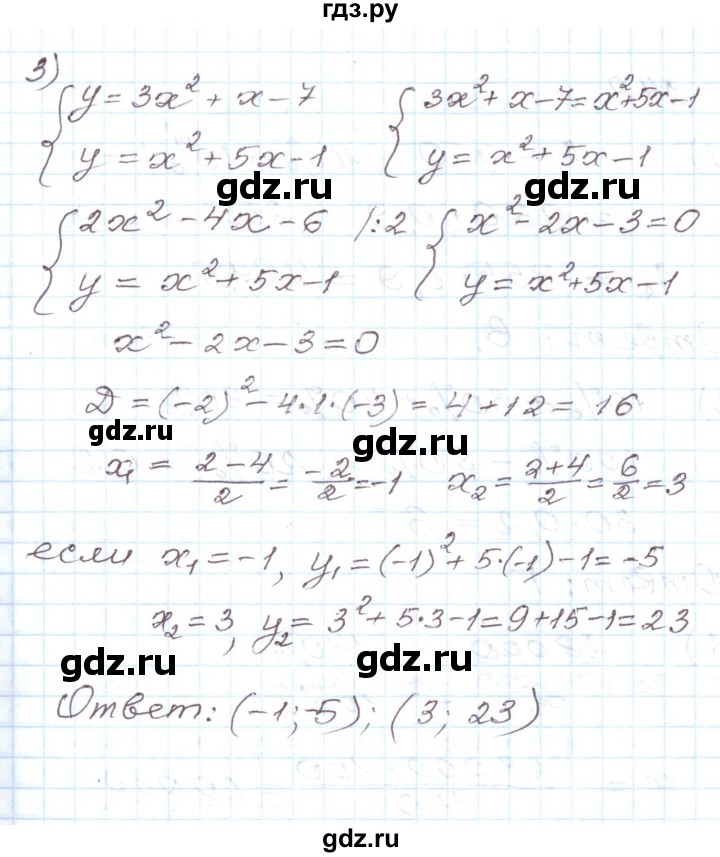 гдз.ру
3)
{ y = 3x² + x - 7 { 3x² + x - 7 = x² + 5x - 1
y = x² + 5x - 1 y = x² + 5x - 1
gdz.ru gdz.ru
{ 2x² - 4x - 6 /:2 { x² - 2x - 3 = 0
y = x² + 5x - 1 y = x² + 5x - 1
x² - 2x - 3 = 0
Д = (-2)² - 4·1·(-3) = 4 + 12 = 16
gdz.ru gdz.ru
x₁ = (2-4)/2 = -2/2 = -1 x₂ = (2+4)/2 = 6/2 = 3
если x₁ = -1, y₁ = (-1)² + 5·(-1) - 1 = -5
x₂ = 3, y₂ = 3² + 5·3 - 1 = 9 + 15 - 1 = 23
gdz.ru gdz.ru
Ответ: (-1; -5); (3; 23)
gdz.ru